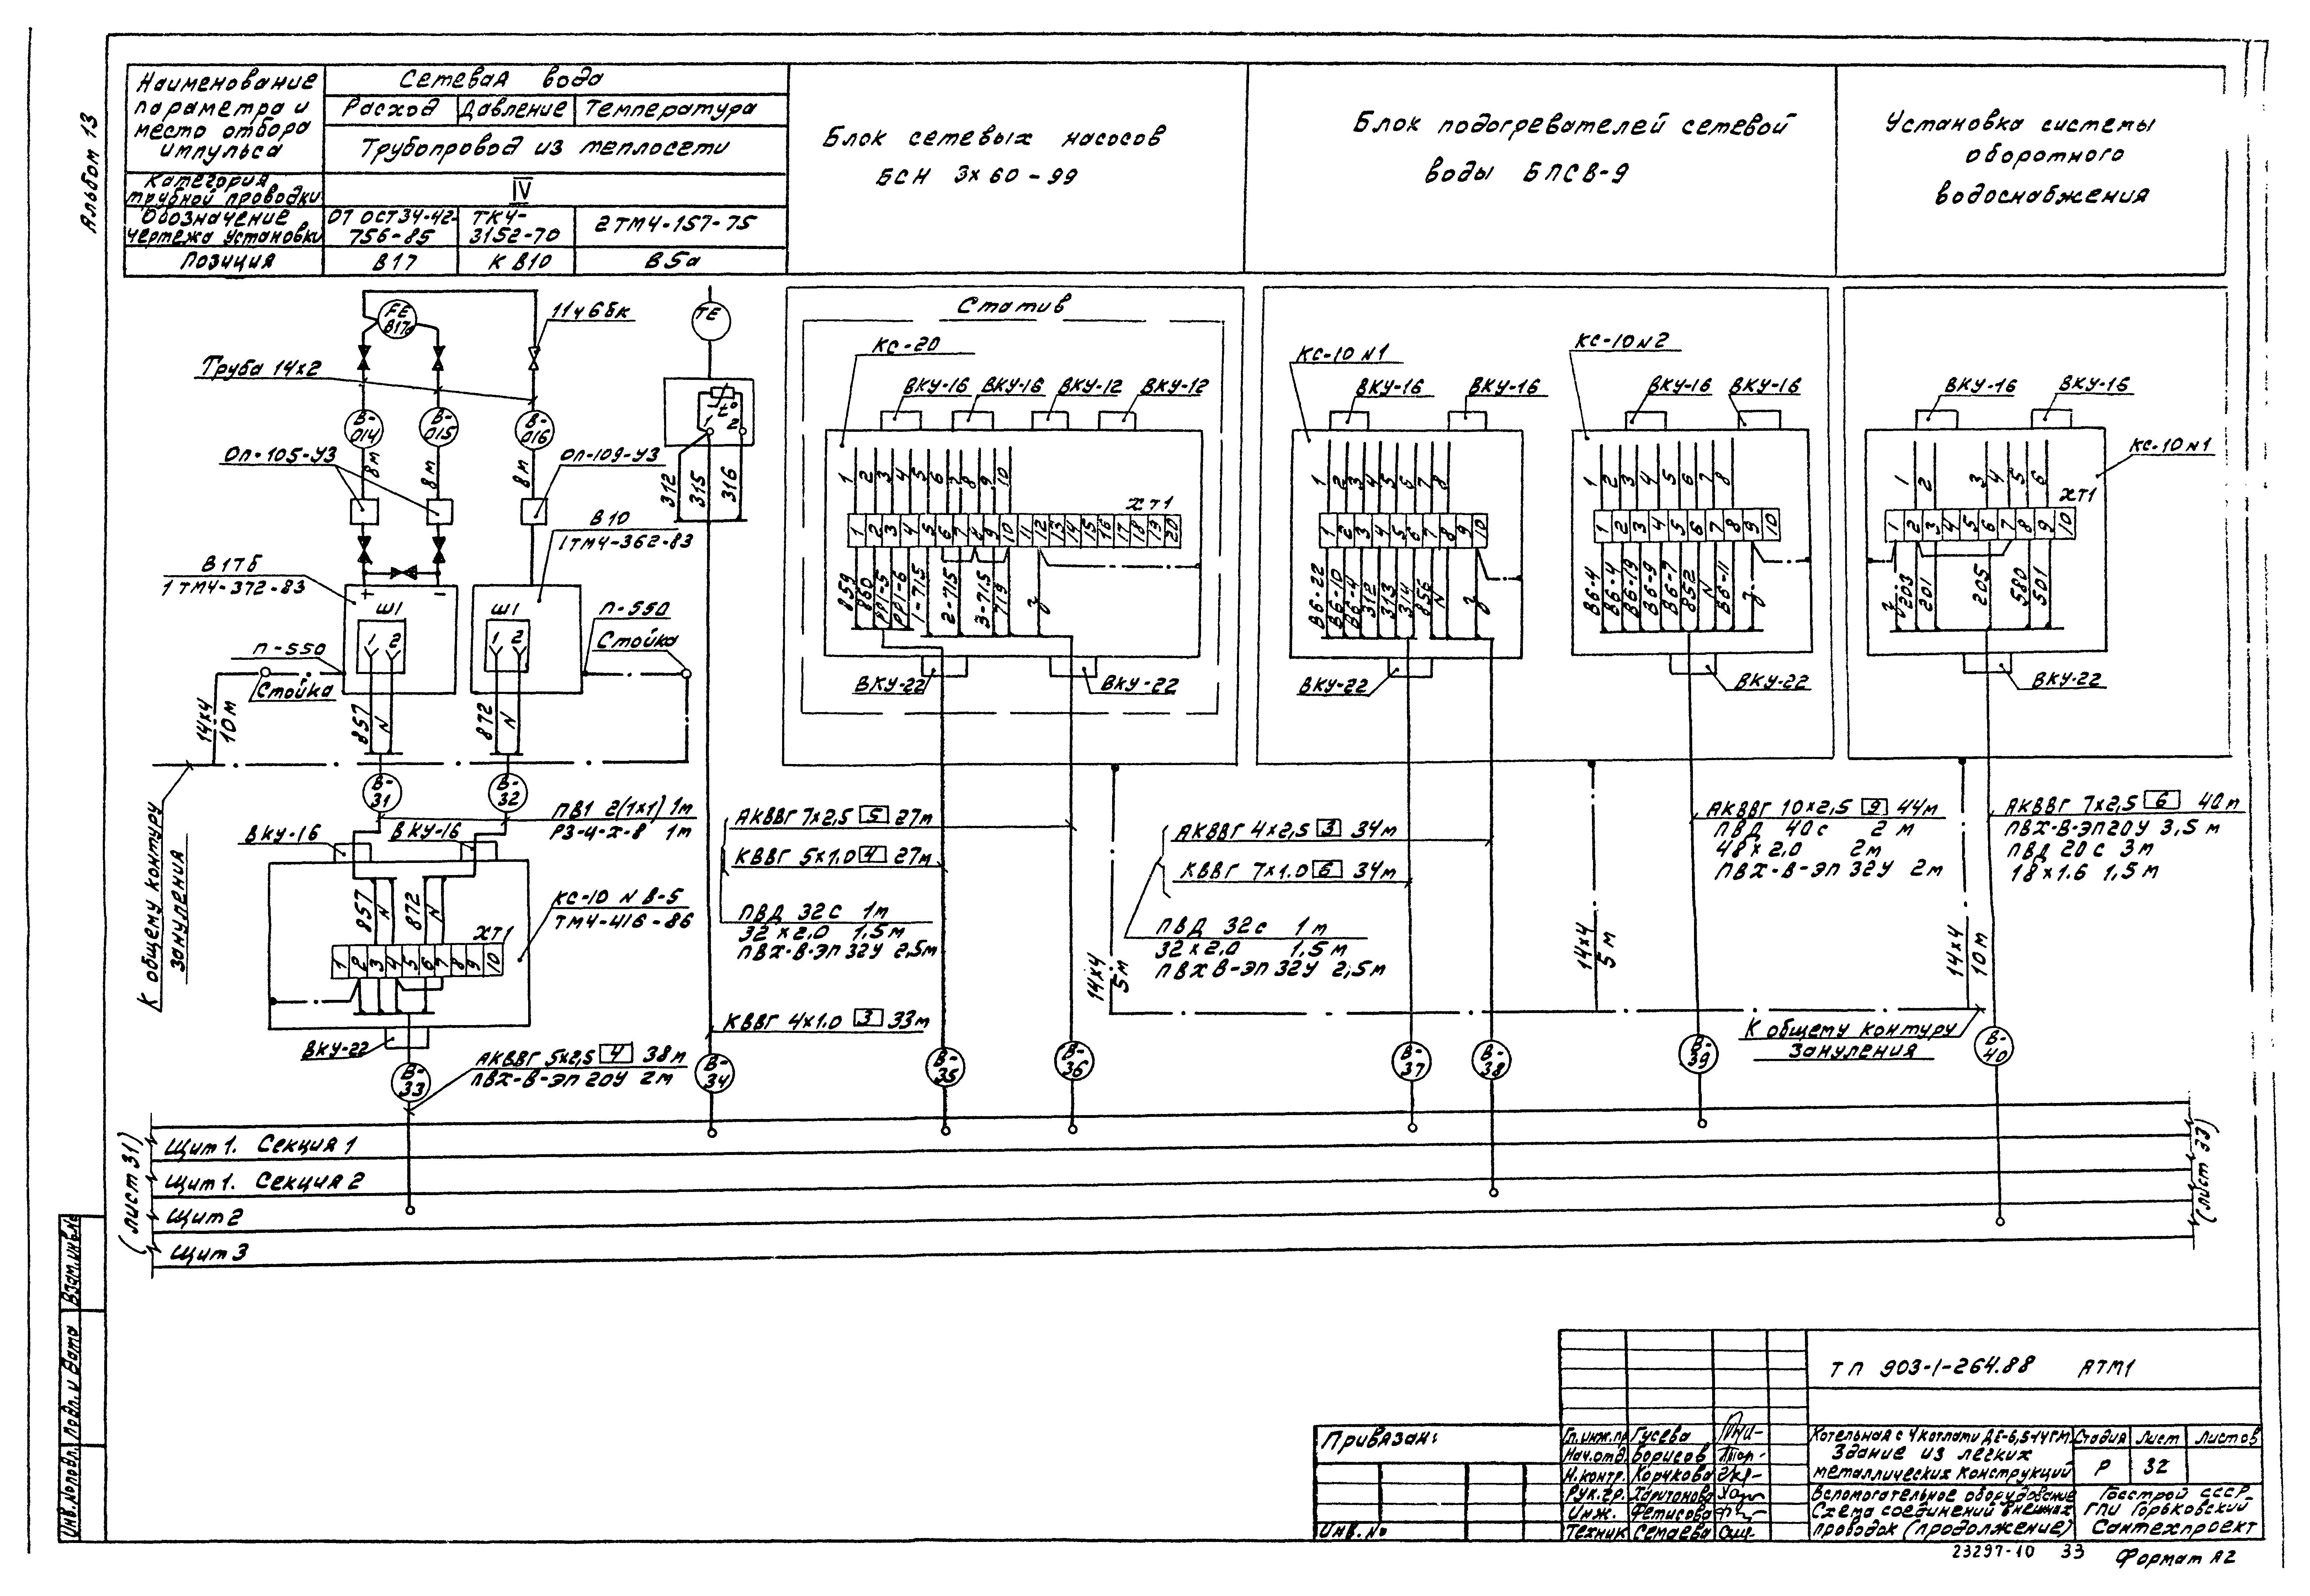 Альбом 13
Наименование
параметра и
место отбора
импульса
Сетевая вода
Расход Давление Температура
Трубопровод из теплосети
Категория
трубной проводки
IV
Обозначение
чертежа установки
07 ОСТ34-42-
756-85
ТК4-
3152-70
2ТМ4-157-75
Позиция
В17
К В10
В5а
Блок сетевых насосов
БСН 3х60-99
Блок подогревателей сетевой
воды БПСВ-9
Установка системы
оборотного
водоснабжения
FE
В17а
11ч6бк
Труба 14х2
В-014
В-015
В-016
8м
8м
8м
ОП-105-У3
ОП-109-У3
В17б
1ТМ4-372-83
В10
1ТМ4-362-83
+
-
Ш1
1 2
Ш1
1 2
П-550
Стойка
П-550
Стойка
14х4
10м
857
N
872
N
В-31
В-32
ПВ1 2(1х1) 1м
РЗ-Ц-Х-8 1м
ВКУ-16
ВКУ-16
К общему контуру
зануления
857
N
872
N
КС-10 N В-5
ТМ4-416-86
ХТ1
1 2 3 4 5 6 7 8 9 10
ВКУ-22
В-33
АКВВГ 5х2,5 4 38м
ПВХ-В-ЭП 20У 2м
TE
t°
1
2
312
315
316
КВВГ 4х1.0 3 33м
В-34
Статив
КС-20
ВКУ-16
ВКУ-16
ВКУ-12
ВКУ-12
1 2 3 4 5 6 7 8 9 10
ХТ1
1 2 3 4 5 6 7 8 9 10 11 12 13 14 15 16 17 18 19 20
859
860
РР1-5
РР1-6
1-715
2-715
3-715
719
З
ВКУ-22
ВКУ-22
АКВВГ 7х2,5 5 27м
КВВГ 5х1.0 4 27м
ПВД 32с 1м
32х2,0 1,5м
ПВХ-В-ЭП 32У 2,5м
В-35
В-36
14х4
5м
КС-10 N1
ВКУ-16
ВКУ-16
1 2 3 4 5 6 7 8
1 2 3 4 5 6 7 8 9 10
В6-22
В6-10
В6-4
312
313
314
856
N
З
ВКУ-22
АКВВГ 4х2,5 3 34м
КВВГ 7х1.0 6 34м
ПВД 32с 1м
32х2,0 1,5м
ПВХ В-ЭП 32У 2,5м
В-37
В-38
КС-10 N2
ВКУ-16
ВКУ-16
1 2 3 4 5 6 7 8
1 2 3 4 5 6 7 8 9 10
В6-4
В6-4
В6-19
В6-9
В6-7
852
N
В6-11
З
ВКУ-22
АКВВГ 10х2,5 9 44м
ПВД 40с 2м
48х2,0 2м
ПВХ-В-ЭП 32У 2м
14х4
5м
В-39
ВКУ-16
ВКУ-16
КС-10 N1
1 2 3 4 5 6
ХТ1
1 2 3 4 5 6 7 8 9 10
З
203
201
205
580
501
ВКУ-22
АКВВГ 7х2,5 6 40м
ПВХ-В-ЭП20У 3,5м
ПВД 20с 3м
18х1.6 1,5м
14х4
10м
К общему контуру
зануления
В-40
(лист 31)
Щит 1. Секция 1
Щит 1. Секция 2
Щит 2
Щит 3
(лист 33)
Инв.№подл. Подп. и дата Взам.инв.№
ТП 903-1-264.88 АТМ1
Привязан:
Инв. №
Гл.инж.пр Гусева
Нач.отд. Борисов
Н.контр. Корчкова
Рук.гр. Харитонова
Инж. Фетисова
Техник Семаева
Котельная с 4 котлами ДЕ-6,5-14ГМ.
Здание из легких
металлических конструкций
Стадия Лист Листов
Р 32
Вспомогательное оборудование
Схема соединений внешних
проводок (продолжение)
Госстрой СССР
ГПИ Горьковский
Сантехпроект
23297-10 33
Формат А2